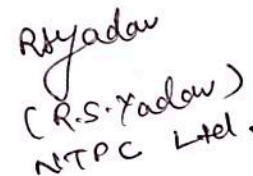 RSYadav
(R.S. Yadav)
NTPC Ltd.